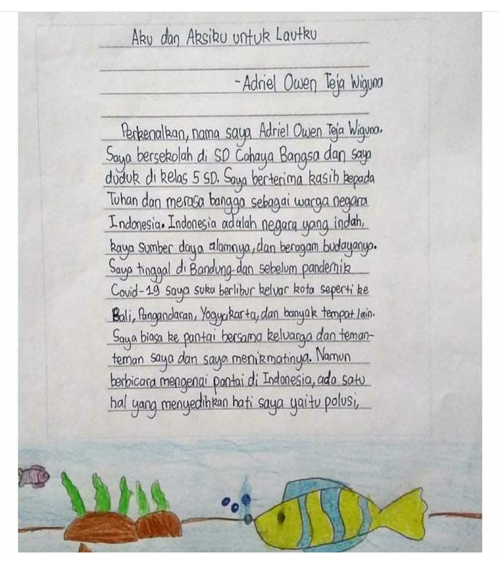 Aku dan Aksiku untuk Lautku
-Adriel Owen Teja Wiguna
Perkenalkan, nama saya Adriel Owen Teja Wiguna.
Saya bersekolah di SD Cahaya Bangsa dan saya
duduk di kelas 5 SD. Saya berterima kasih kepada
Tuhan dan merasa bangga sebagai warga negara
Indonesia. Indonesia adalah negara yang indah,
kaya sumber daya alamnya, dan beragam budayanya.
Saya tinggal di Bandung dan sebelum pandemik
Covid-19 saya suka berlibur keluar kota seperti ke
Bali, Pangandaran, Yogyakarta, dan banyak tempat lain.
Saya biasa ke pantai bersama keluarga dan teman-
teman saya dan saya menikmatinya. Namun
berbicara mengenai pantai di Indonesia, ada satu
hal yang menyedihkan hati saya yaitu polusi,